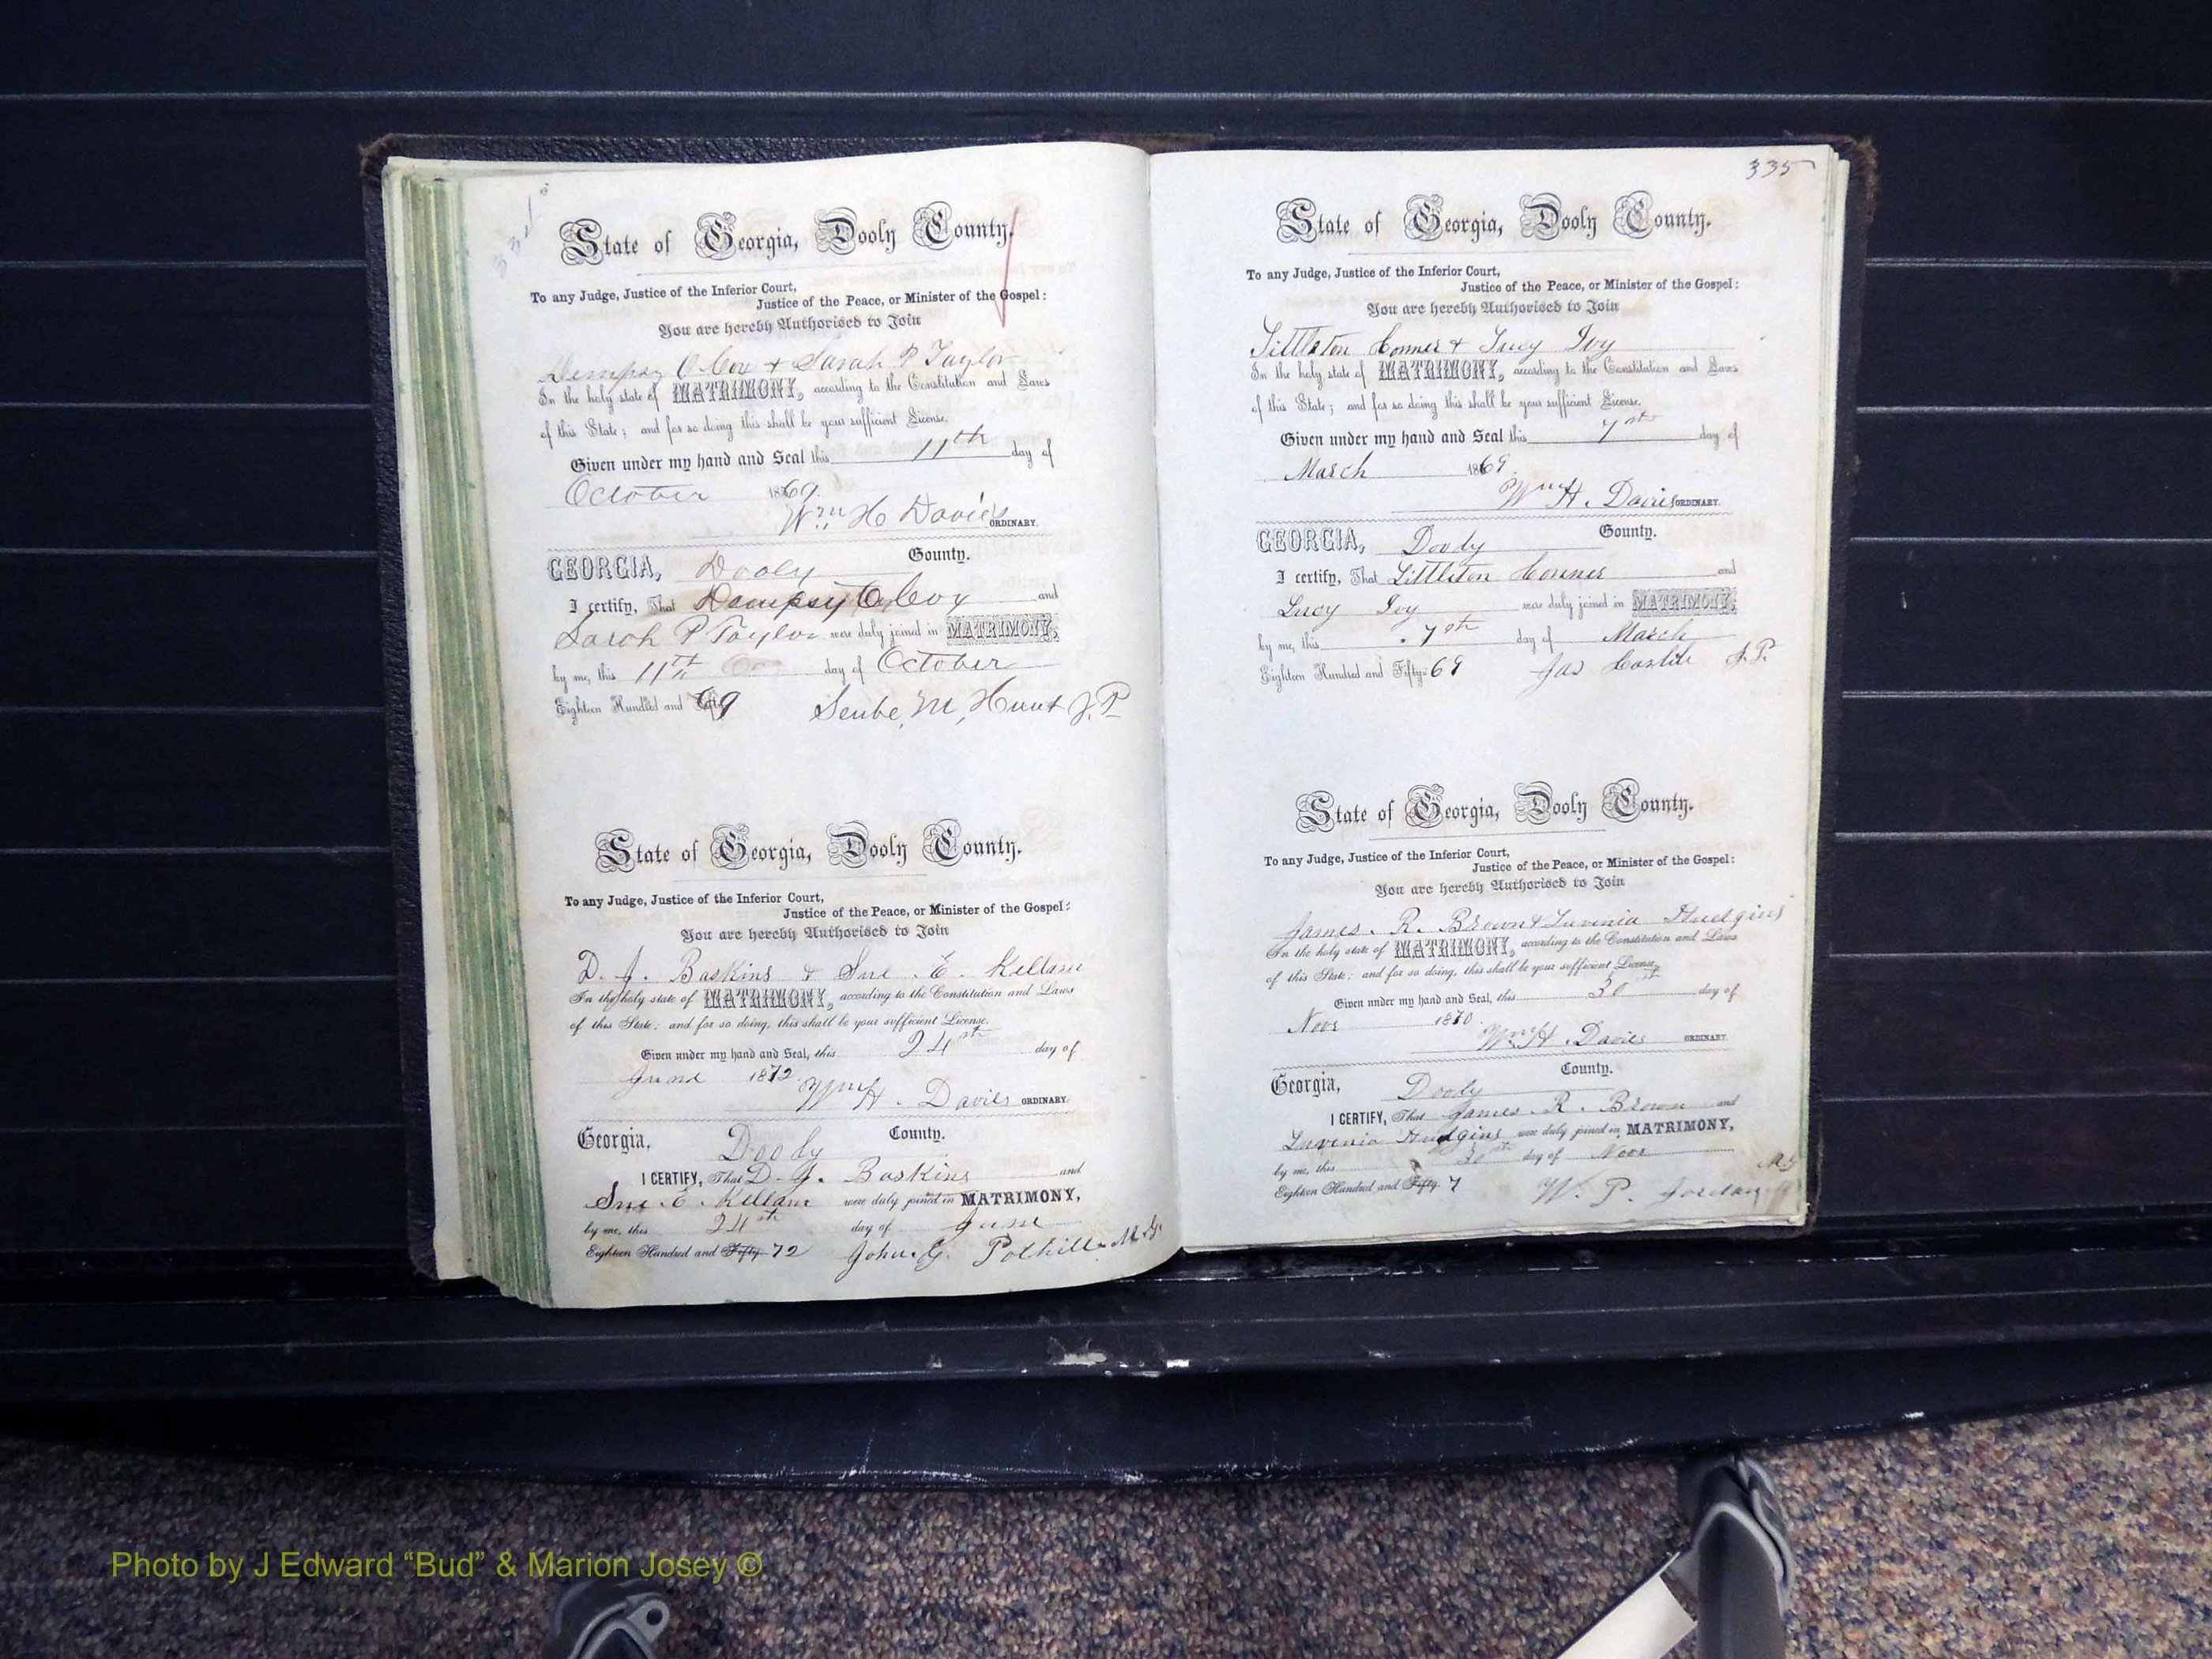 State of Georgia, Dooly County.
To any Judge, Justice of the Inferior Court,
Justice of the Peace, or Minister of the Gospel:
You are hereby Authorised to Join
Dempsy O Cox & Sarah P Taylor
In the holy state of MATRIMONY, according to the Constitution and Laws
of this State; and for so doing this shall be your sufficient License.
Given under my hand and Seal this 11th day of
October 1869.
Wm H Davies ORDINARY.
GEORGIA, Dooly County.
I certify, That Dempsy O Cox and
Sarah P Taylor were duly joined in MATRIMONY,
by me, this 11th day of October
Eighteen Hundred and 69 M, Hunt J. P.
State of Georgia, Dooly County.
To any Judge, Justice of the Inferior Court,
Justice of the Peace, or Minister of the Gospel:
You are hereby Authorised to Join
D. J. Baskins & Sue E. Kellam
In the holy state of MATRIMONY, according to the Constitution and Laws
of this State: and for so doing, this shall be your sufficient License.
Given under my hand and Seal, this 24th day of
June 1872. Wm H. Davies ORDINARY.
Georgia, Dooly County.
I CERTIFY, That D. J. Baskins and
Sue E. Kellam were duly joined in MATRIMONY,
by me, this 24th day of June
Eighteen Hundred and Fifty 72 John. G. Polhill M.G.
335
State of Georgia, Dooly County.
To any Judge, Justice of the Inferior Court,
Justice of the Peace, or Minister of the Gospel:
You are hereby Authorised to Join
Littleton Conner & Lucy Ivy
In the holy state of MATRIMONY, according to the Constitution and Laws
of this State; and for so doing this shall be your sufficient License.
Given under my hand and Seal this 7th day of
March 1869.
Wm H. Davies ORDINARY.
GEORGIA, Dooly County.
I certify, That Littleton Conner and
Lucy Ivy were duly joined in MATRIMONY,
by me, this 7th day of March
Eighteen Hundred and Fifty- 69 Jas J.P.
State of Georgia, Dooly County.
To any Judge, Justice of the Inferior Court,
Justice of the Peace, or Minister of the Gospel:
You are hereby Authorised to Join
James. R. Brown & Luvenia Hudgins
In the holy state of MATRIMONY, according to the Constitution and Laws
of this State: and for so doing, this shall be your sufficient License.
Given under my hand and Seal, this 30th day of
Novr 1870.
Wm H. Davies ORDINARY.
Georgia, Dooly County.
I CERTIFY, That James R. Brown and
Luvenia Hudgins were duly joined in MATRIMONY,
by me, this 30th day of Novr
Eighteen Hundred and Fifty- 7 W. P. Jordan M G
Photo by J Edward “Bud” & Marion Josey ©